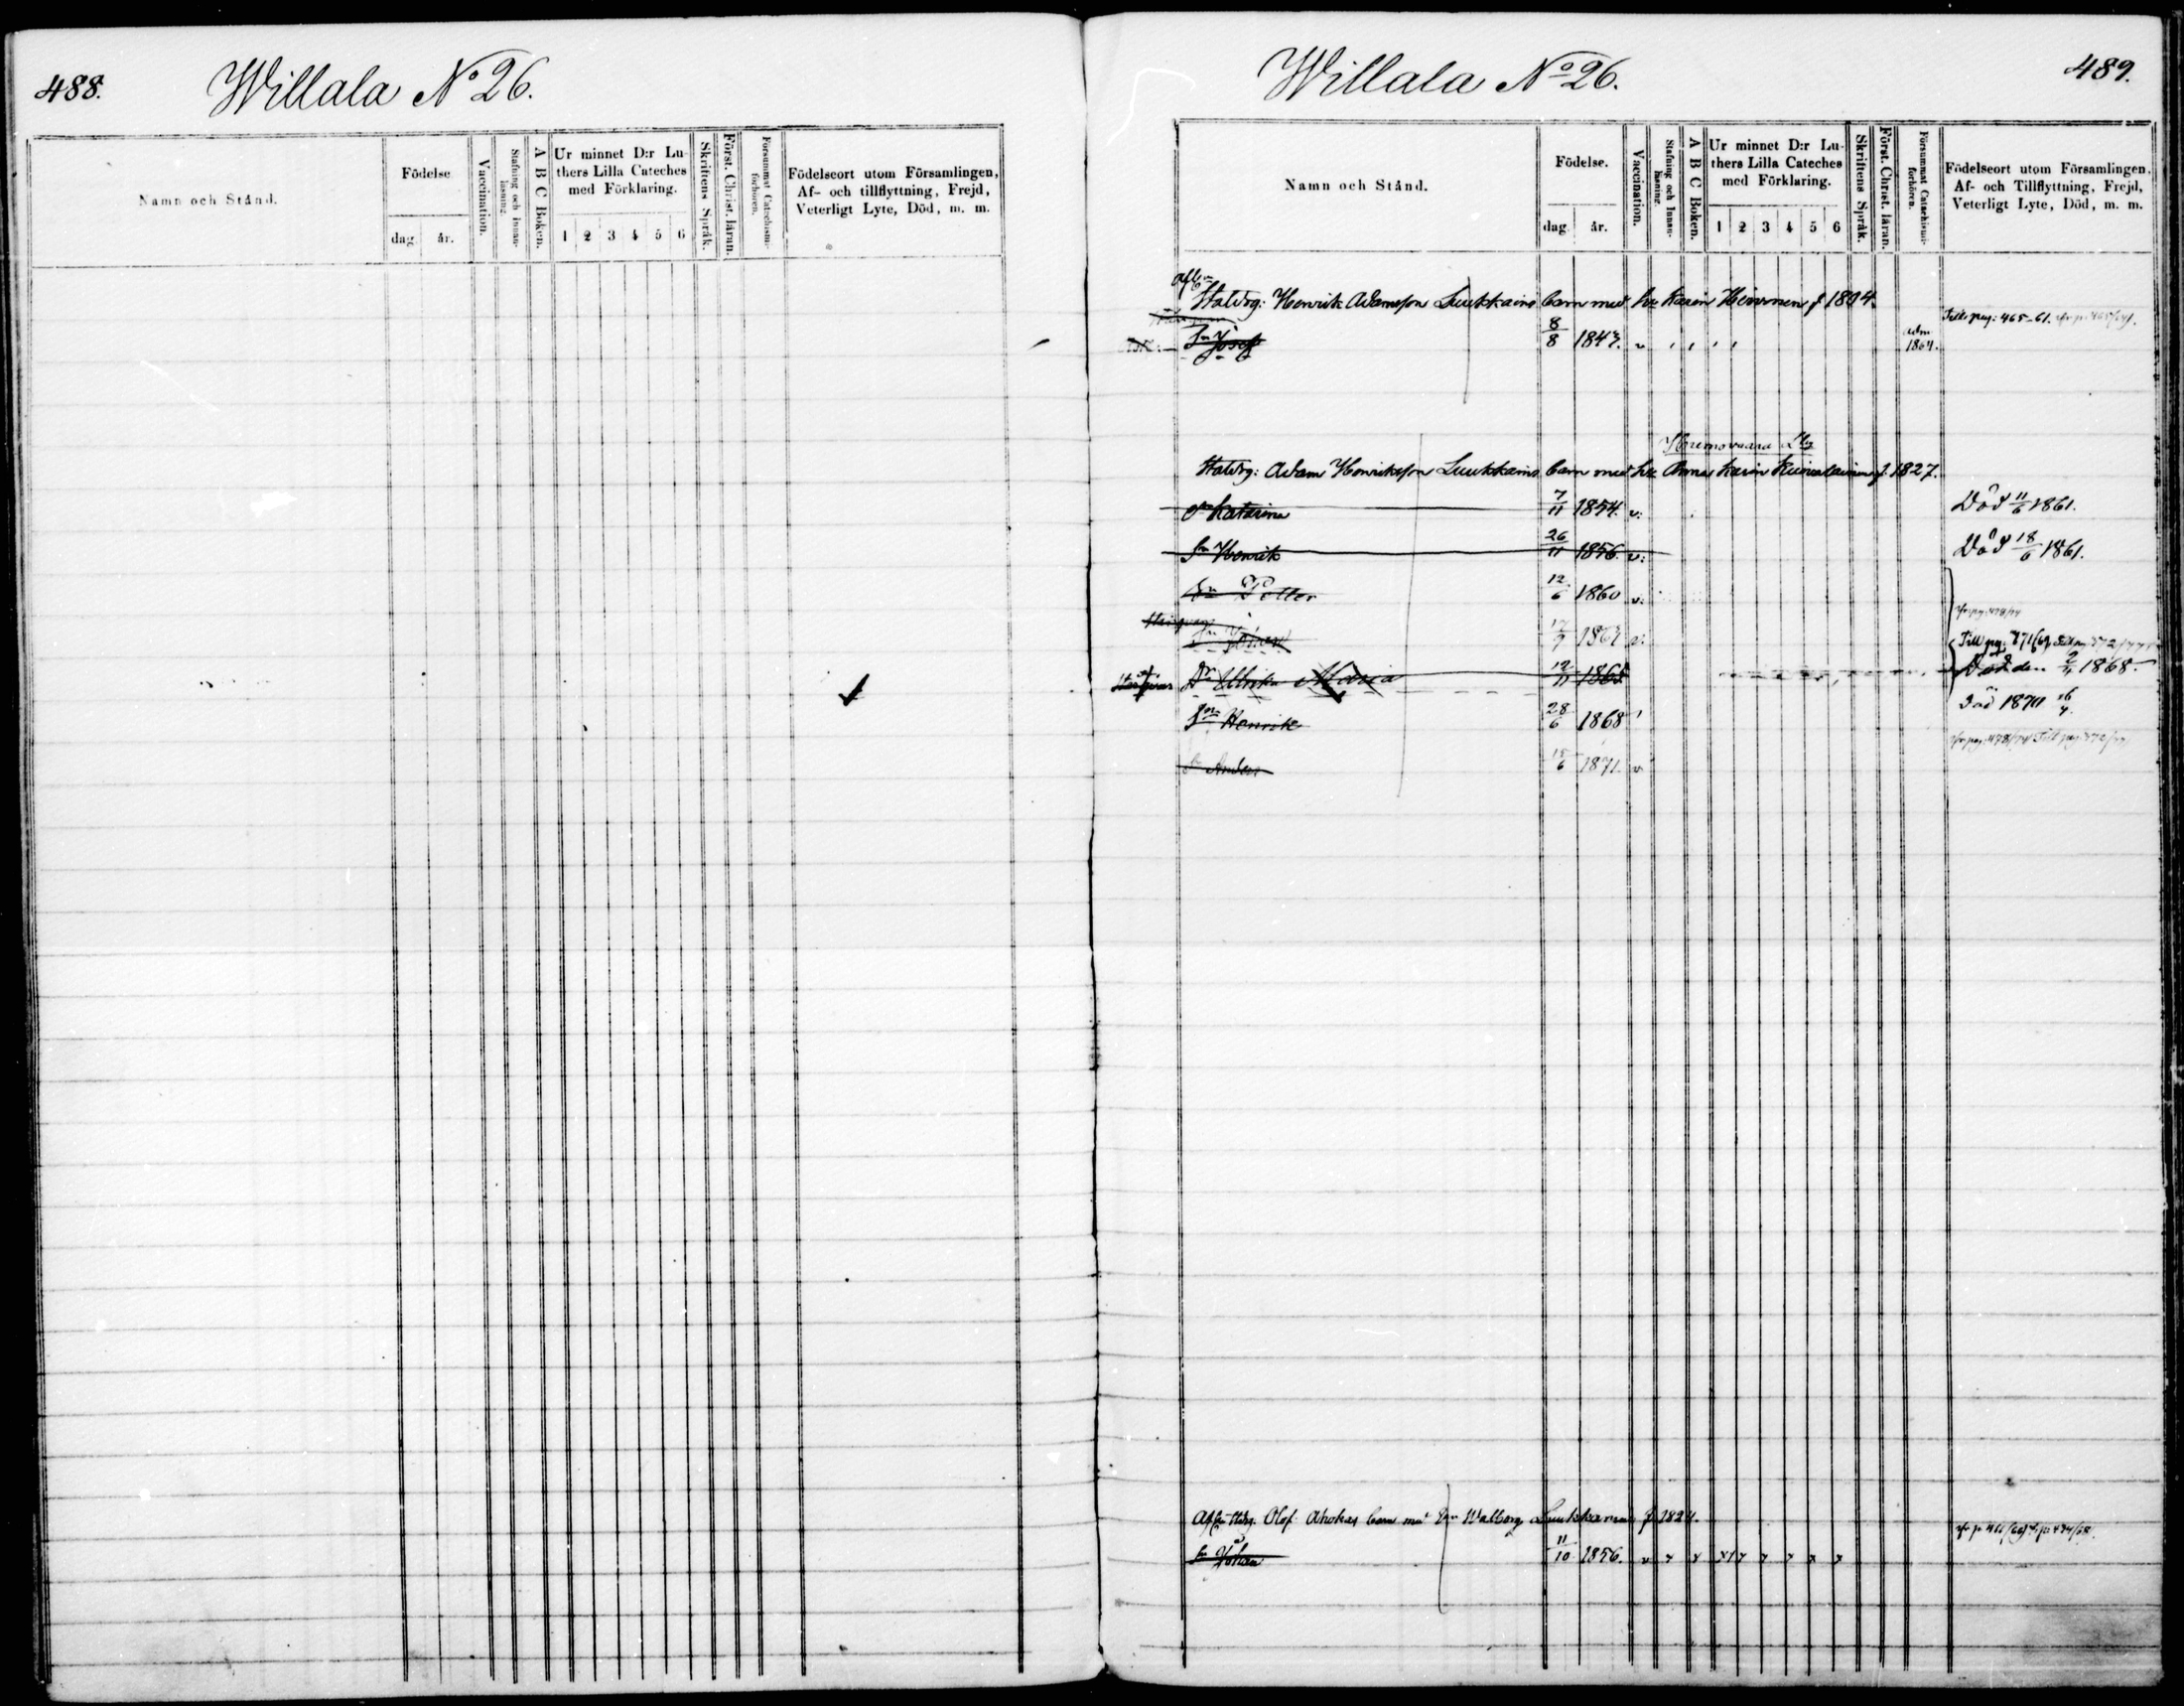 488.
Willala No 26.
Namn och Stånd.
Födelse
dag. år.
Vaccination.
Stafning och Innan-läsning.
A B C Boken.
Ur minnet D:r Lu-
thers Lilla Cateches
med Förklaring.
1 2 3 4 5 6
Skriftens Språk.
Först. Christ. läran.
Försummat Catechismi-förhören.
Födelseort utom Församlingen,
Af- och tillflyttning, Frejd,
Veterligt Lyte, Död, m. m.
Willala No 26.
489.
Namn och Stånd.
Födelse.
dag år.
Vaccination.
Stafning och Innan-läsning.
A B C Boken.
Ur minnet D:r Lu-
thers Lilla Cateches
med Förklaring.
1 2 3 4 5 6
Skriftens Språk.
Först. Christ. läran.
Försummat Catechismi-förhören.
Födelseort utom Församlingen,
Af- och Tillflyttning, Frejd,
Veterligt Lyte, Död, m. m.
Afl:
Henrik Adamsson Luukkains barn med Karin f. 1804.
Sn Josef 8/8 1847. v adm 1864. pag: 465-61.
Adam Henriksson Luukkains barn med Anna Karin f. 1827.
Dr Katarina 7/11 1854. v: Död 11/6 1861.
Sn Henrik 26/11 1856. v: Död 18/6 1861.
Sn Petter 12/6 1860 v:
Dr Ulrika Maria 12/11 1865 Död den 2/4 1868.
Sn Henrik 28/6 1868 Död 1870
Sn Anders 15/6 1871. v
Olof Ahokas barn med Walborg Luukkainen f. 1824.
Sn Johan 11/10 1856. v